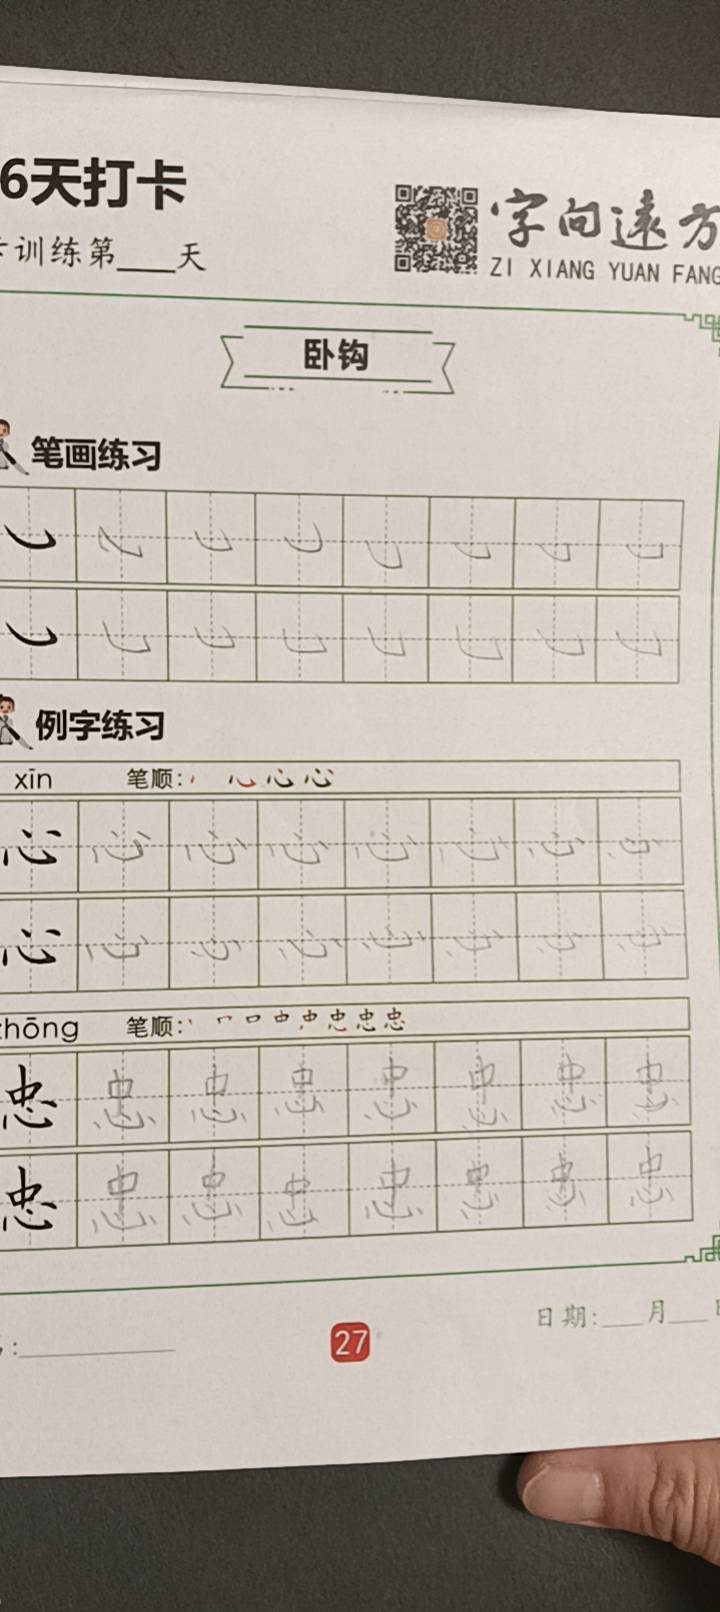 6天打卡
字向远方
训练第____天
ZI XIANG YUAN FANG
卧钩
笔画练习
例字练习
xīn 笔顺:
心 心 心 心 心 心 心 心
心 心 心 心 心 心 心 心
zhōng 笔顺:
忠 忠 忠 忠 忠 忠 忠 忠
忠 忠 忠 忠 忠 忠 忠 忠
日期:____月____
27